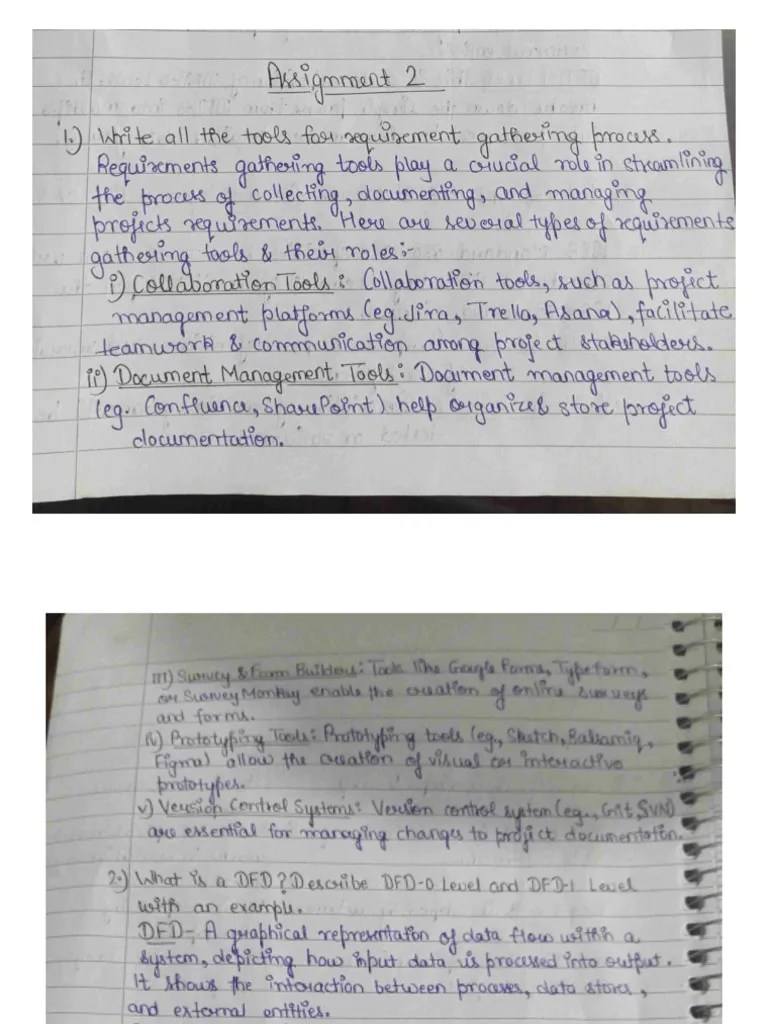 Assignment 2
1.) Write all the tools for requirement gathering process.
Requirements gathering tools play a crucial role in streamlining
the process of collecting, documenting, and managing
projects requirements. Here are several types of requirements
gathering tools & their roles:-
i) Collaboration Tools: Collaboration tools, such as project
management platforms (eg. Jira, Trello, Asana), facilitate
teamwork & communication among project stakeholders.
ii) Document Management Tools: Document management tools
(eg. Confluence, SharePoint) help organize & store project
documentation.
III) Survey & Form Builders: Tools like Google Forms, Typeform,
or SurveyMonkey enable the creation of online surveys
and forms.
iv) Prototyping Tools: Prototyping tools (eg., Sketch, Balsamiq,
Figma) allow the creation of visual or interactive
prototypes.
v) Version Control Systems: Version control system (eg., Git, SVN)
are essential for managing changes to project documentation.
2.) What is a DFD? Describe DFD-0 Level and DFD-1 Level
with an example.
DFD- A graphical representation of data flow within a
system, depicting how input data is processed into output.
It shows the interaction between processes, data stores,
and external entities.